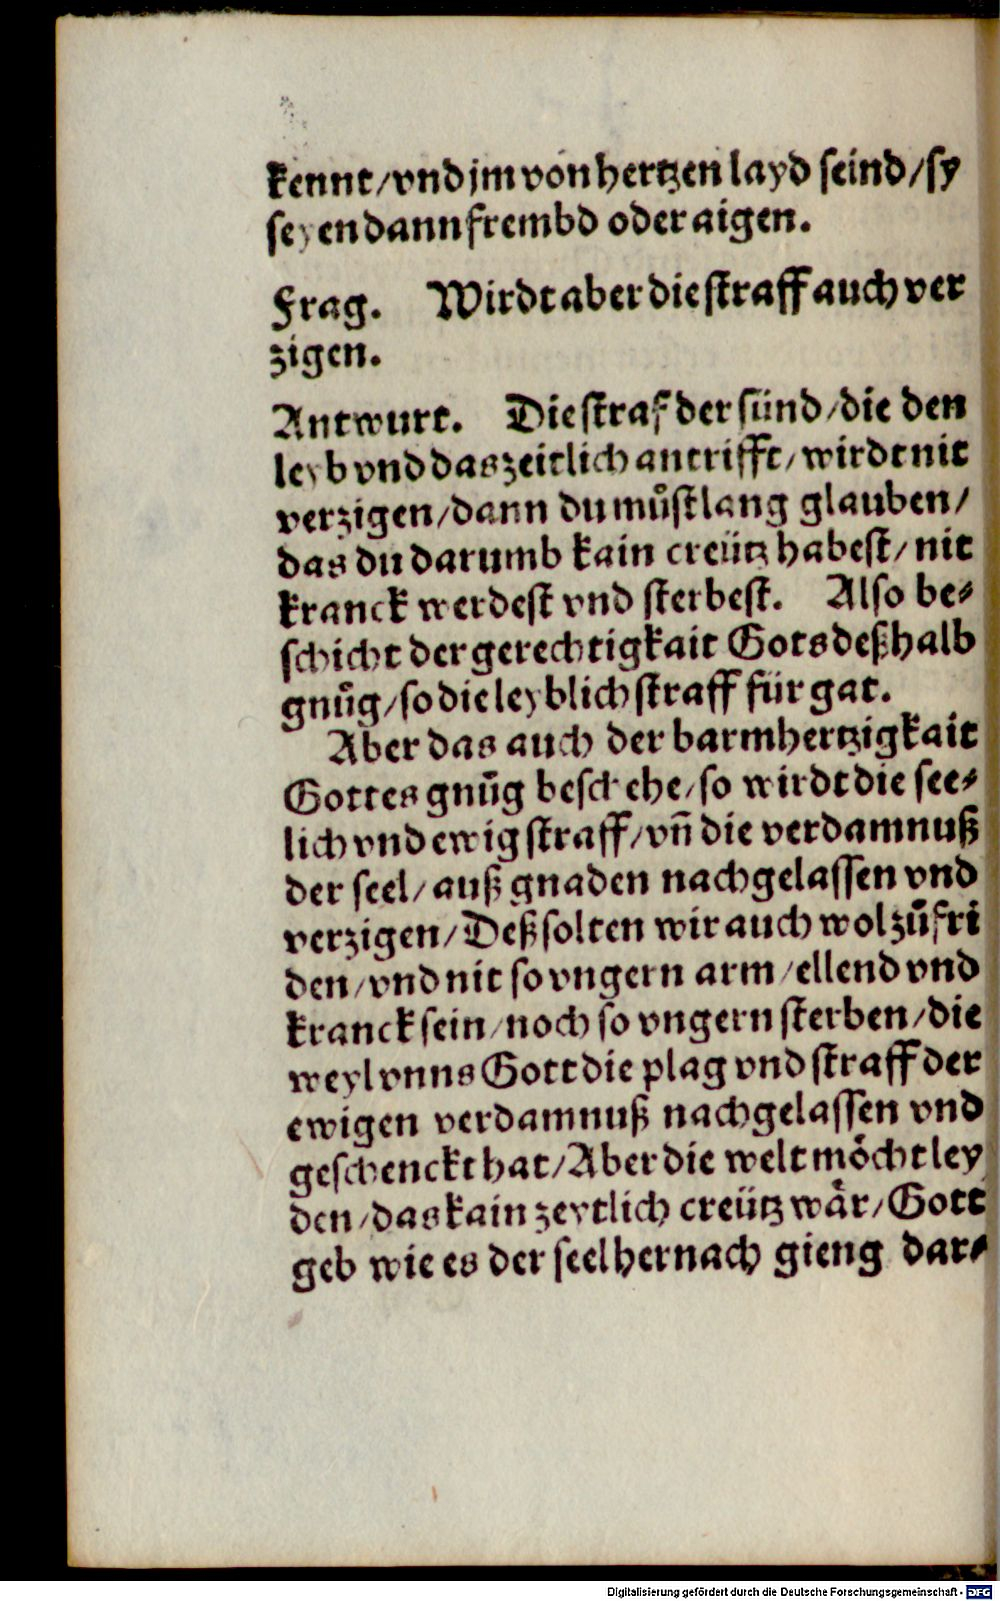 kennt/vnd jm von hertzen layd seind/sy
seyen dann frembd oder aigen.
Frag. Wirdt aber die straff auch ver
zigen.
Antwurt. Die straf der sünd/die den
leyb vnd das zeitlich antrifft/wirdt nit
verzigen/dann du můst lang glauben/
das du darumb kain creütz habest/nit
kranck werdest vnd sterbest. Also be⸗
schicht der gerechtigkait Gots deßhalb
gnůg/so die leyblich straff für gat.
Aber das auch der barmhertzigkait
Gottes gnůg beschehe/so wirdt die see⸗
lich vnd ewig straff/vñ die verdamnuß
der seel/auß gnaden nachgelassen vnd
verzigen/Deß solten wir auch wol zůfri
den/vnd nit so vngern arm/ellend vnd
kranck sein/noch so vngern sterben/die
weyl vnns Gott die plag vnd straff der
ewigen verdamnuß nachgelassen vnd
geschenckt hat/Aber die welt möcht ley
den/das kain zeytlich creütz wår/Gott
geb wie es der seel hernach gieng dar⸗
Digitalisierung gefördert durch die Deutsche Forschungsgemeinschaft - DFG